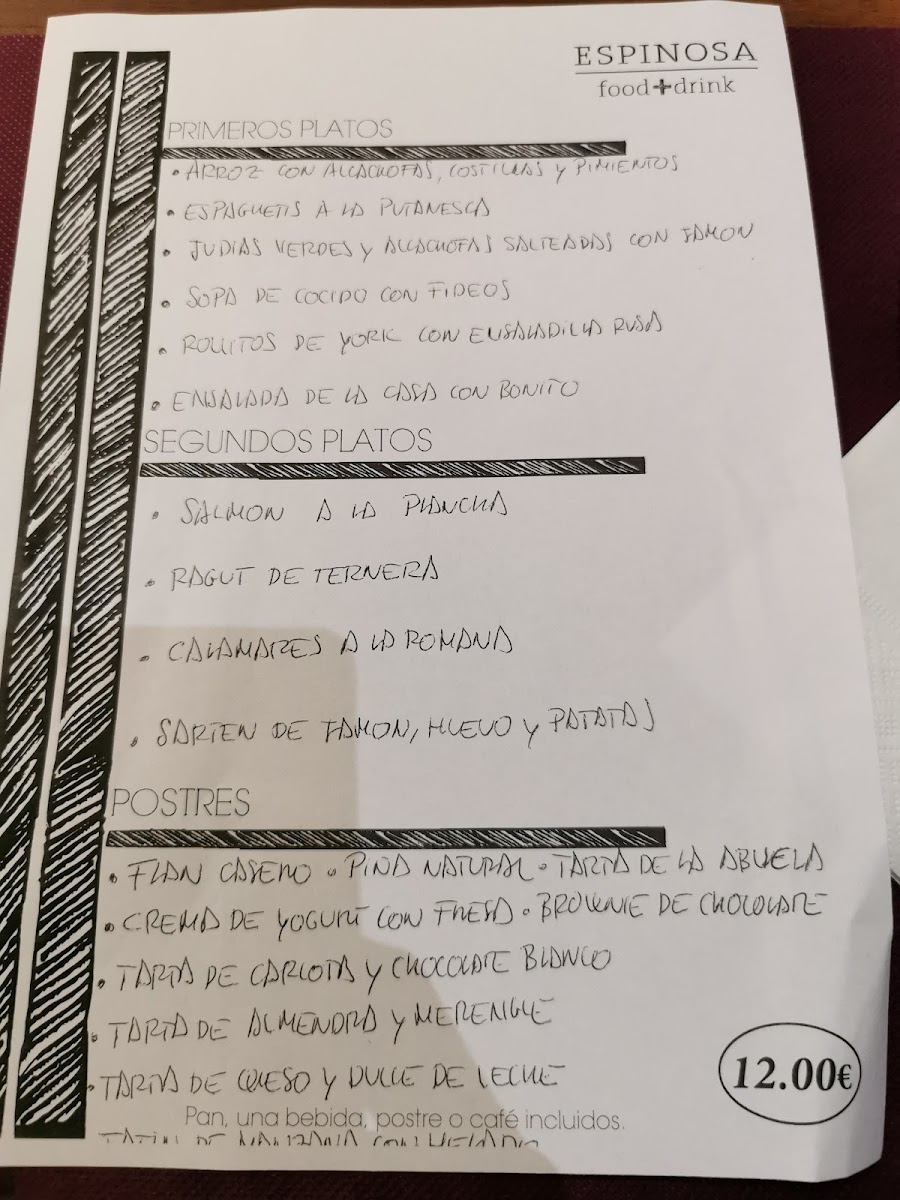 ESPINOSA
food+drink
PRIMEROS PLATOS
• ARROZ CON ALCACHOFAS, COSTILLAS y PIMIENTOS
• ESPAGUETIS A LA PUTANESCA
• JUDIAS VERDES y ALCACHOFAS SALTEADAS CON JAMON
• SOPA DE COCIDO CON FIDEOS
• ROLLITOS DE YORK CON ENSALADILLA RUSA
• ENSALADA DE LA CASA CON BONITO
SEGUNDOS PLATOS
• SALMON A LA PLANCHA
• RAGUT DE TERNERA
• CALAMARES A LA ROMANA
• SARTEN DE JAMON, HUEVO y PATATAS
POSTRES
• FLAN CASERO • PIÑA NATURAL • TARTA DE LA ABUELA
• CREMA DE YOGURT CON FRESA • BROWNIE DE CHOCOLATE
• TARTA DE CARLOTA y CHOCOLATE BLANCO
• TARTA DE ALMENDRA y MERENGUE
• TARTA DE QUESO y DULCE DE LECHE
12.00€
Pan, una bebida, postre o café incluidos.
TATIN DE MANZANA CON HELADO